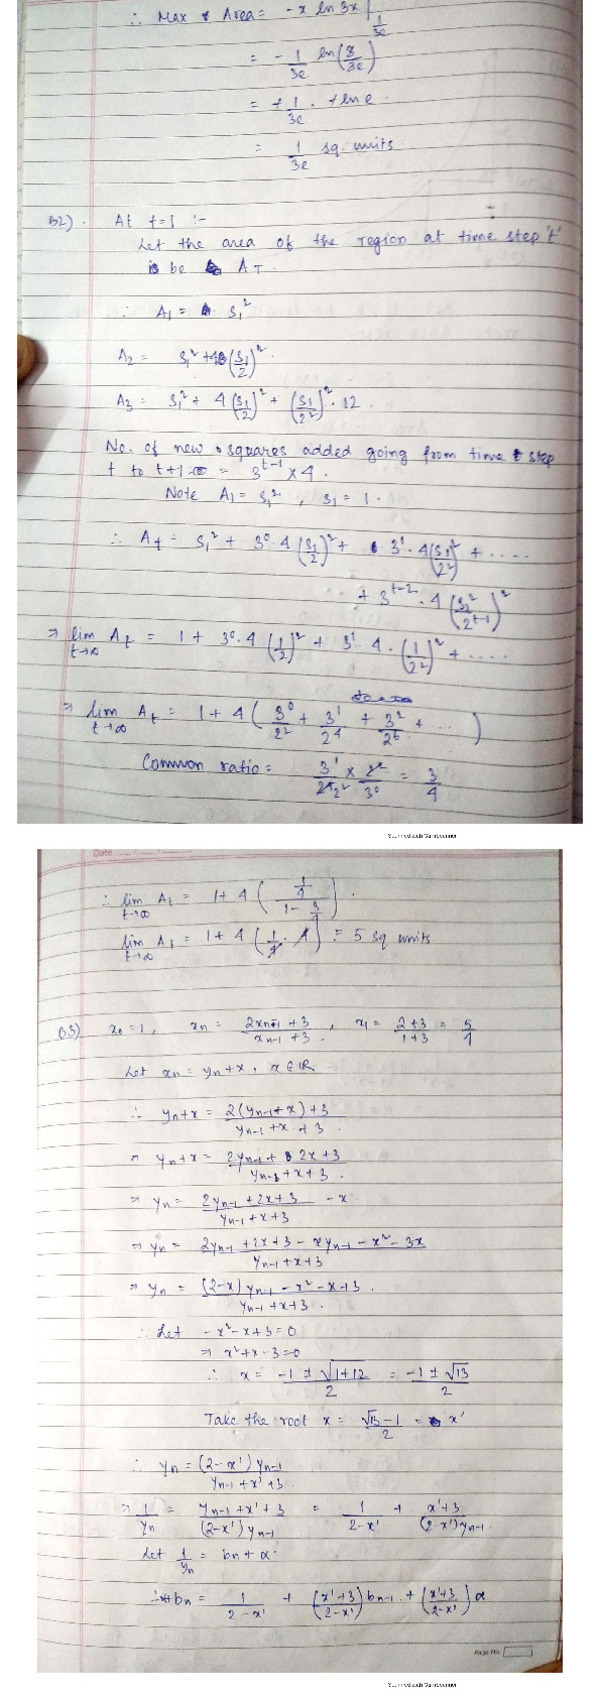 ∴ Max Area = -x ln 3x |_{1/3e}
= -1/3e ln(3/3e)
= +1/3e · + ln e
= 1/3e sq. units
B2). At t=1 :-
Let the area of the region at time step 't'
be A_T.
∴ A₁ = s₁²
A₂ = s₁² + 4(s₁/2)²
A₃ = s₁² + 4(s₁/2)² + (s₁/2²)² · 12.
No. of new squares added going from time step
t to t+1 = 3^{t-1} × 4.
Note A₁ = s₁², s₁ = 1.
∴ A_t = s₁² + 3⁰·4(s₁/2)² + 3¹·4(s₁/2²)² + ....
+ 3^{t-2}·4(s₁²/2^{t-1})²
⇒ lim_{t→∞} A_t = 1 + 3⁰·4(1/2)² + 3¹·4·(1/2²)² + ....
⇒ lim_{t→∞} A_t = 1 + 4(3⁰/2² + 3¹/2⁴ + 3²/2⁶ + ...)
Common ratio = 3¹/2⁴ 2² × 2²/3⁰ = 3/4
Date
∴ lim_{t→∞} A_t = 1 + 4((1/4)/(1 - 3/4)).
lim_{t→∞} A_t = 1 + 4(1/4 · 4) = 5 sq units
B3) x₀ = 1, x_n = (2x_{n-1} + 3)/(x_{n-1} + 3), x₁ = (2+3)/(1+3) = 5/4
Let x_n = y_n + x, x ∈ ℝ
∴ y_n + x = (2(y_{n-1} + x) + 3)/(y_{n-1} + x + 3)
⇒ y_n + x = (2y_{n-1} + 2x + 3)/(y_{n-1} + x + 3).
⇒ y_n = (2y_{n-1} + 2x + 3)/(y_{n-1} + x + 3) - x
⇒ y_n = (2y_{n-1} + 2x + 3 - xy_{n-1} - x² - 3x)/(y_{n-1} + x + 3)
⇒ y_n = ((2-x)y_{n-1} - x² - x + 3)/(y_{n-1} + x + 3).
∴ Let -x² - x + 3 = 0
⇒ x² + x - 3 = 0
∴ x = (-1 ± √(1+12))/2 = (-1 ± √13)/2
Take the root x = (√13 - 1)/2 = x'
∴ y_n = ((2-x')y_{n-1})/(y_{n-1} + x' + 3).
⇒ 1/y_n = (y_{n-1} + x' + 3)/((2-x')y_{n-1}) = 1/(2-x') + (x'+3)/((2-x')y_{n-1}).
Let 1/y_n = b_n + α.
∴ α + b_n = 1/(2-x') + ((x'+3)/(2-x'))b_{n-1} + ((x'+3)/(2-x'))α
Page No.